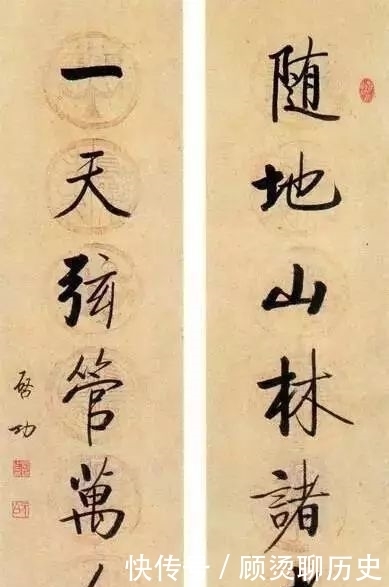 随地山林諸
一天弦管萬
啓功
快传号 / 顾烫聊历史